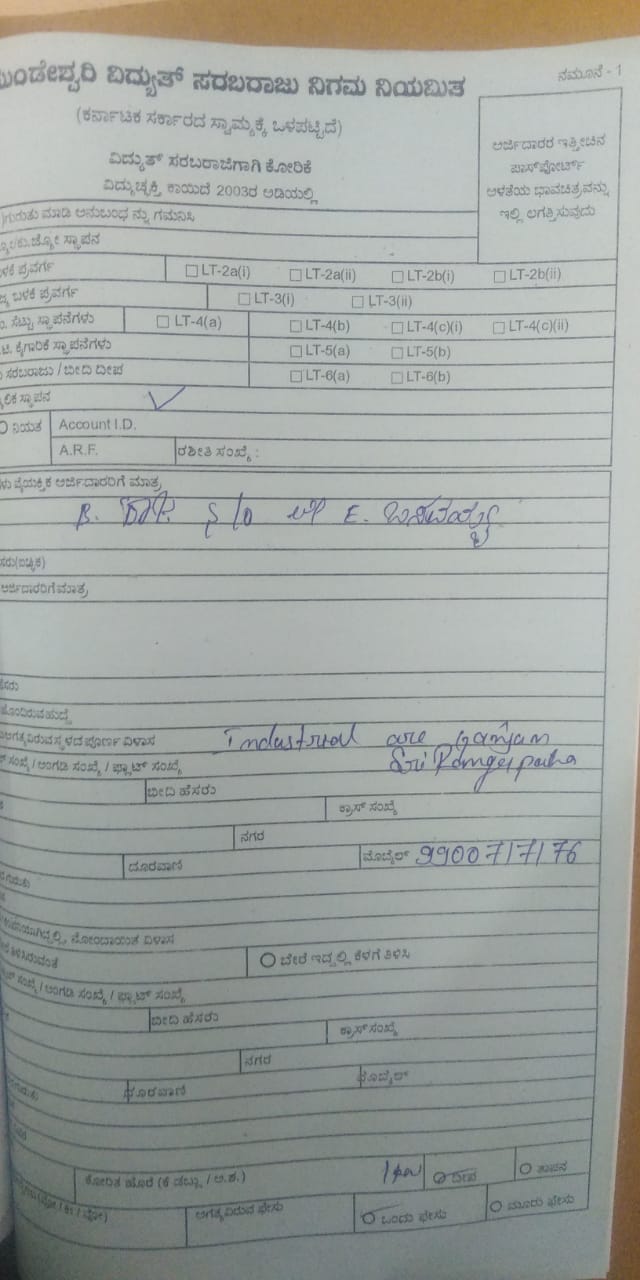 ಮುಂಡೇಶ್ವರಿ ವಿದ್ಯುತ್ ಸರಬರಾಜು ನಿಗಮ ನಿಯಮಿತ
ನಮೂನೆ - 1
(ಕರ್ನಾಟಕ ಸರ್ಕಾರದ ಸ್ವಾಮ್ಯಕ್ಕೆ ಒಳಪಟ್ಟಿದೆ)
ವಿದ್ಯುತ್ ಸರಬರಾಜಿಗಾಗಿ ಕೋರಿಕೆ
ವಿದ್ಯುಚ್ಛಕ್ತಿ ಕಾಯಿದೆ 2003ರ ಅಡಿಯಲ್ಲಿ
ಅರ್ಜಿದಾರರ ಇತ್ತೀಚಿನ
ಪಾಸ್‌ಪೋರ್ಟ್
ಅಳತೆಯ ಭಾವಚಿತ್ರವನ್ನು
ಇಲ್ಲಿ ಲಗತ್ತಿಸುವುದು
ಗುರುತು ಮಾಡಿ ಅನುಬಂಧ ನ್ನು ಗಮನಿಸಿ
ಸ್ಥಾಪನ
ಬಳಕೆ ಪ್ರವರ್ಗ LT-2a(i) LT-2a(ii) LT-2b(i) LT-2b(ii)
ಬಳಕೆ ಪ್ರವರ್ಗ LT-3(i) LT-3(ii)
ಸೆಟ್ಟು ಸ್ಥಾಪನೆಗಳು LT-4(a) LT-4(b) LT-4(c)(i) LT-4(c)(ii)
ಕೈಗಾರಿಕೆ ಸ್ಥಾಪನೆಗಳು LT-5(a) LT-5(b)
ಸರಬರಾಜು / ಬೀದಿ ದೀಪ LT-6(a) LT-6(b)
ಸ್ಥಾಪನ
ನಿಯತ Account I.D.
A.R.F. ರಶೀತಿ ಸಂಖ್ಯೆ :
ವೈಯಕ್ತಿಕ ಅರ್ಜಿದಾರರಿಗೆ ಮಾತ್ರ
B. S/o E.
ಅರ್ಜಿದಾರರಿಗೆ ಮಾತ್ರ
ಹೆಸರು
ಹೊಂದಿರುವ ಹುದ್ದೆ
ಅಗತ್ಯವಿರುವ ಸ್ಥಳದ ಪೂರ್ಣ ವಿಳಾಸ Industrial are Ganjam
ಸಂಖ್ಯೆ / ಅಂಗಡಿ ಸಂಖ್ಯೆ / ಫ್ಲಾಟ್ ಸಂಖ್ಯೆ
ಬೀದಿ ಹೆಸರು
ಕ್ರಾಸ್ ಸಂಖ್ಯೆ
ನಗರ
ದೂರವಾಣಿ ಮೊಬೈಲ್ 9900717176
ನೋಂದಾಯಿತ ವಿಳಾಸ
ಬೇರೆ ಇದ್ದಲ್ಲಿ ಕೆಳಗೆ ತಿಳಿಸಿ
ಸಂಖ್ಯೆ / ಅಂಗಡಿ ಸಂಖ್ಯೆ / ಫ್ಲಾಟ್ ಸಂಖ್ಯೆ
ಬೀದಿ ಹೆಸರು
ಕ್ರಾಸ್ ಸಂಖ್ಯೆ
ನಗರ
ದೂರವಾಣಿ ಮೊಬೈಲ್
ಕೋರಿತ ಹೊರೆ (ಕಿ ಡಬ್ಲ್ಯೂ / ಅ.ಶ.) ದೀಪ ತಾಪನ
ಅಗತ್ಯವಿರುವ ಫೇಸು ಒಂದು ಫೇಸು ಮೂರು ಫೇಸು